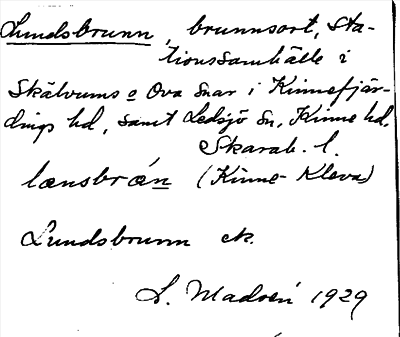 Lundsbrunn, brunnsort, sta-
tionssamhälle i
Skälvums o Ova snar i Kinnefjär-
dings hd, samt Ledsjö sn, Kinne hd.
Skarab. l.
lœnsbrœ́n (Kinne-Kleva)
Lundsbrunn ek.
L. Madsén 1929